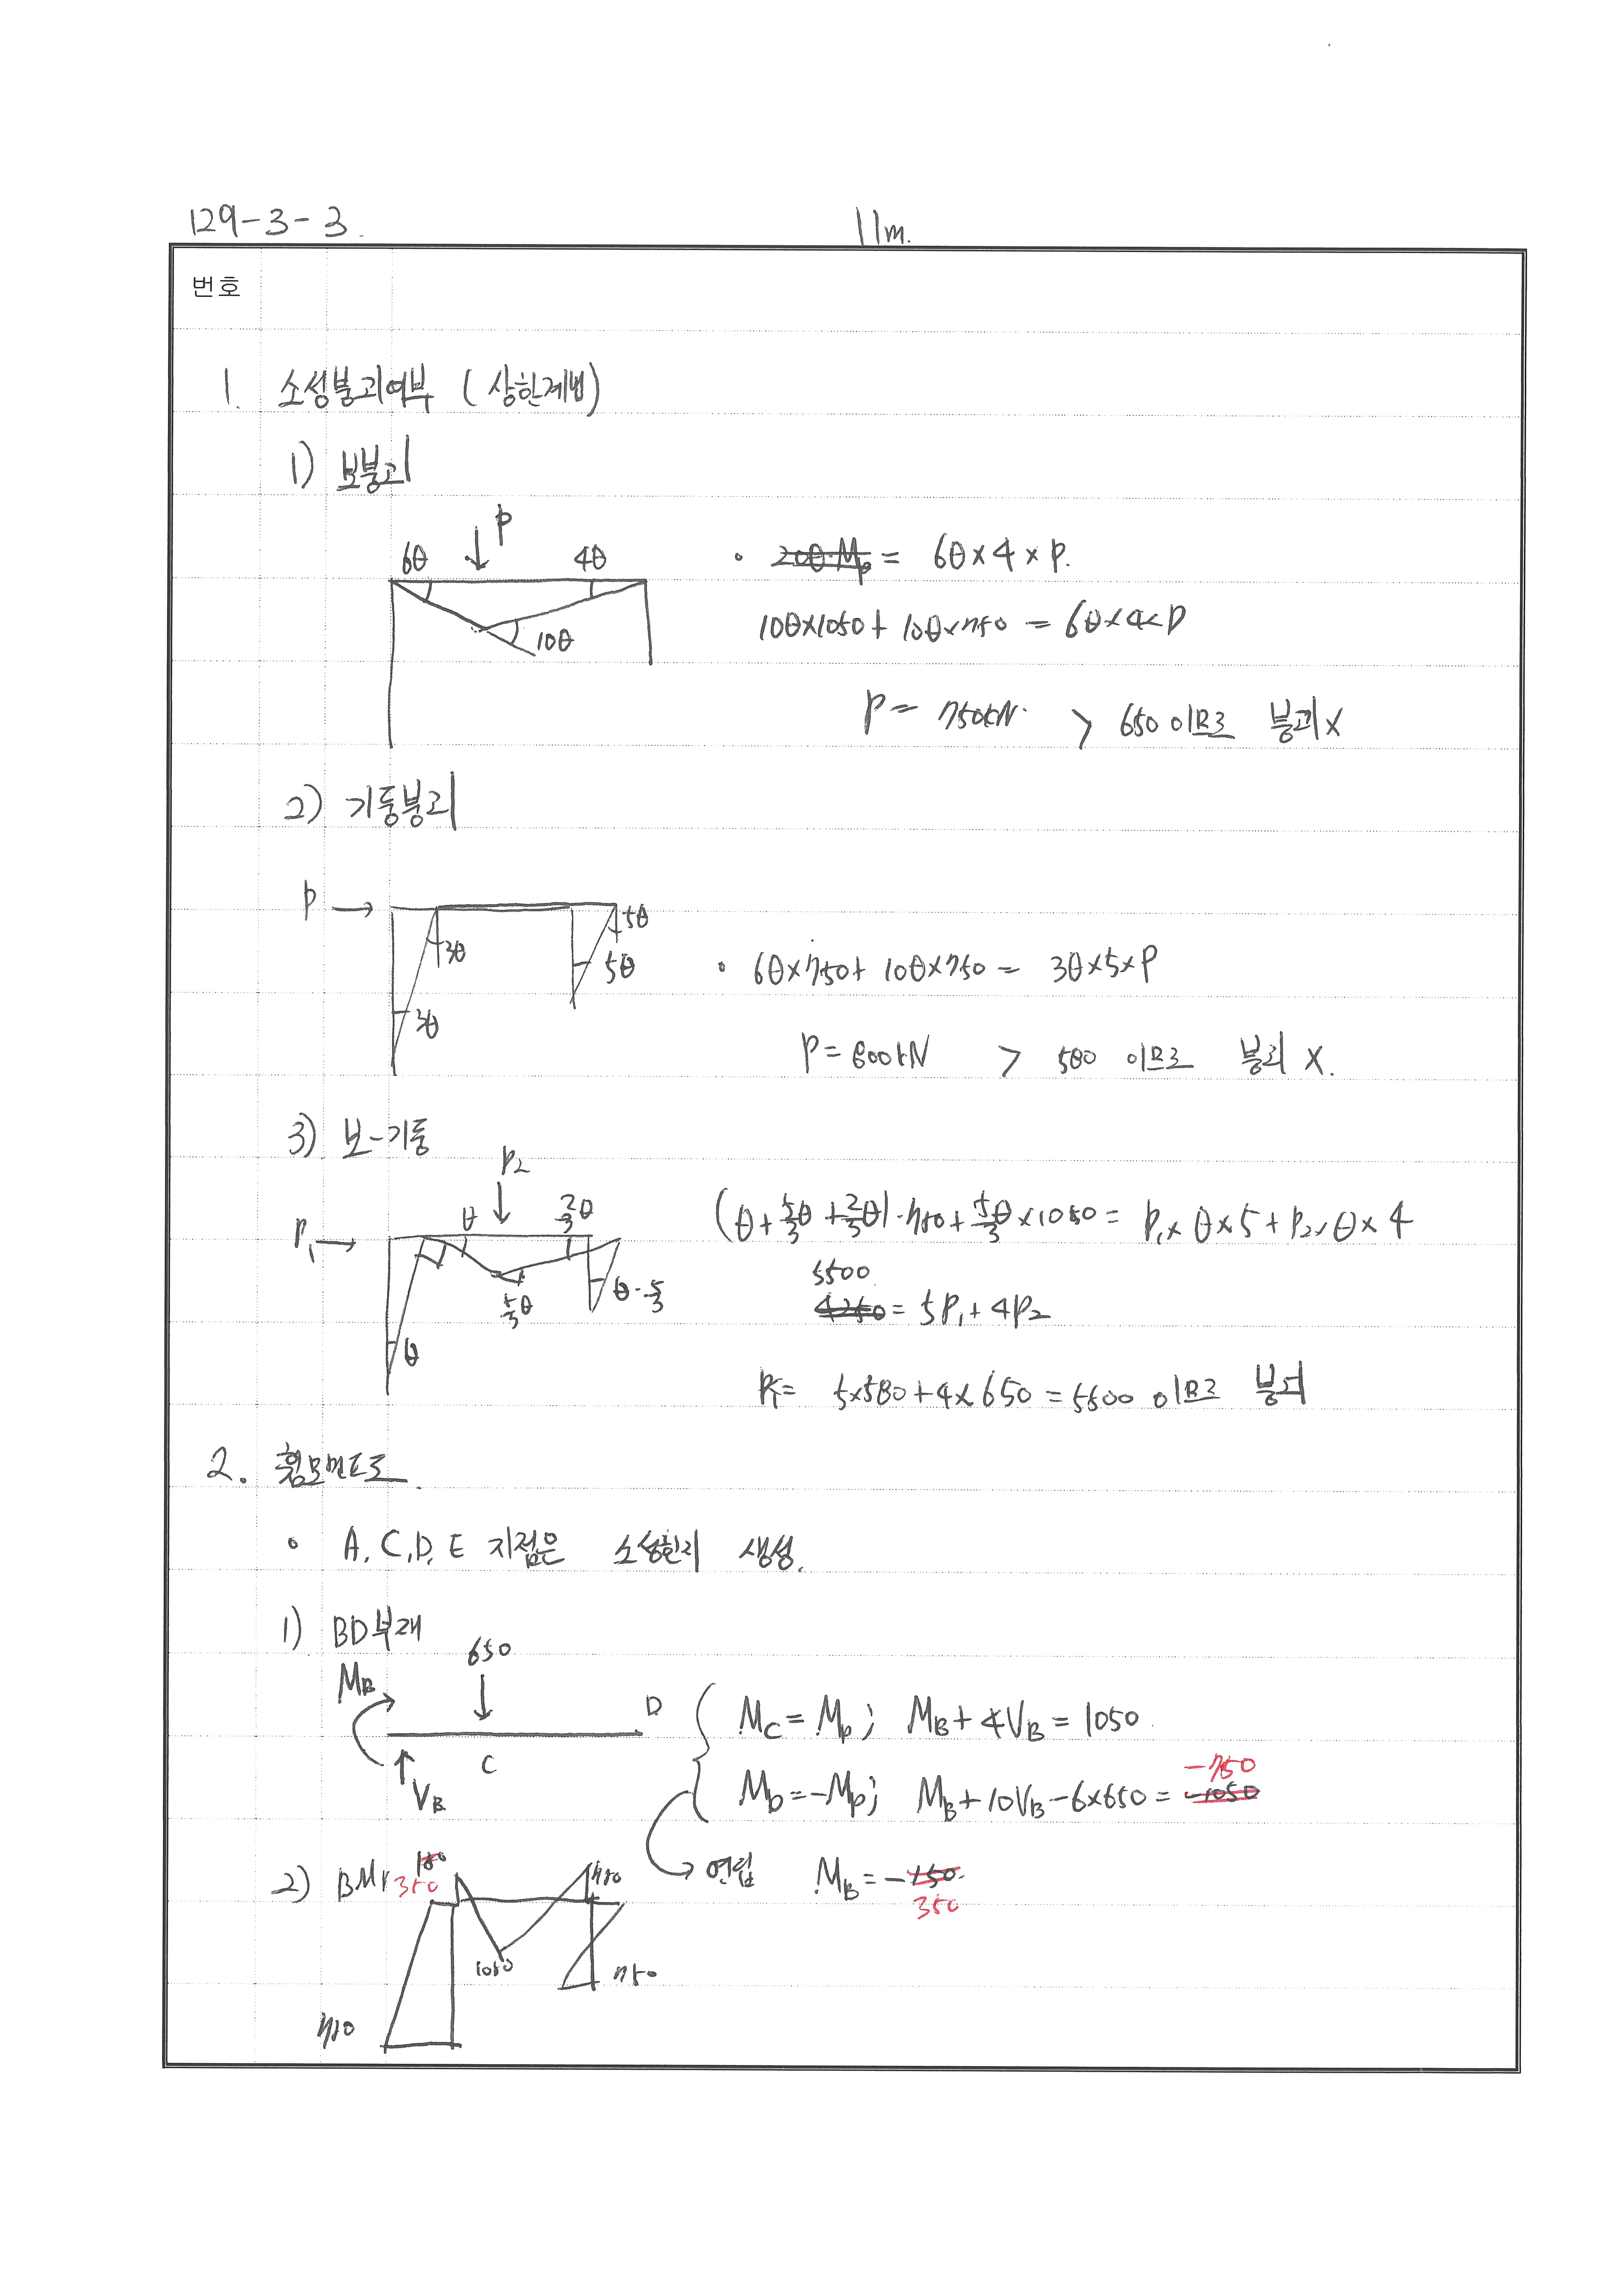 129-3-3.
11m.
번호
1. 소성붕괴여부 (상한계법)
1) 보붕괴
P
6θ 4θ
10θ
• 20θ·Mp = 6θ×4×P.
10θ×1050 + 10θ×750 = 6θ×4×P
P = 750kN. > 650 이므로 붕괴X
2) 기둥붕괴
P →
3θ
3θ
5θ
5θ
• 6θ×750 + 10θ×750 = 3θ×5×P
P = 800kN > 580 이므로 붕괴 X.
3) 보-기둥
P₂
P₁ →
θ 2/3θ
5/3θ
θ·5/3
θ
(θ + 5/3θ + 2/3θ)·750 + 5/3θ×1050 = P₁×θ×5 + P₂×θ×4
5500
4250 = 5P₁ + 4P₂
5×580 + 4×650 = 5500 이므로 붕괴
2. 휨모멘트도.
• A, C, D, E 지점은 소성힌지 생성.
1) BD부재
650
M_B
D
C
V_B
M_C = Mp ; M_B + 4V_B = 1050.
M_D = -Mp ; M_B + 10V_B - 6×650 = -1050
-750
연립 M_B = -150.
350
2) BM
350
750
1050
750
750